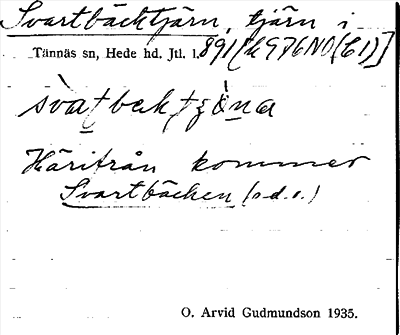 Svartbäcktjärn, tjärn i
Tännäs sn, Hede hd. Jtl. l. 891 [k 976 NO (C 1)]
Härifrån kommer
Svartbäcken (s.d.o.)
O. Arvid Gudmundson 1935.